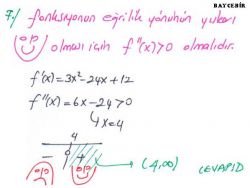 BAYCEBİR
7-/ fonksiyonun eğrilik yönünün yukarı
olması için f''(x)>0 olmalıdır.
f'(x)=3x²-24x+12
f''(x)=6x-24>0
x=4
4
- 0 +
(4,∞) (CEVAP D)